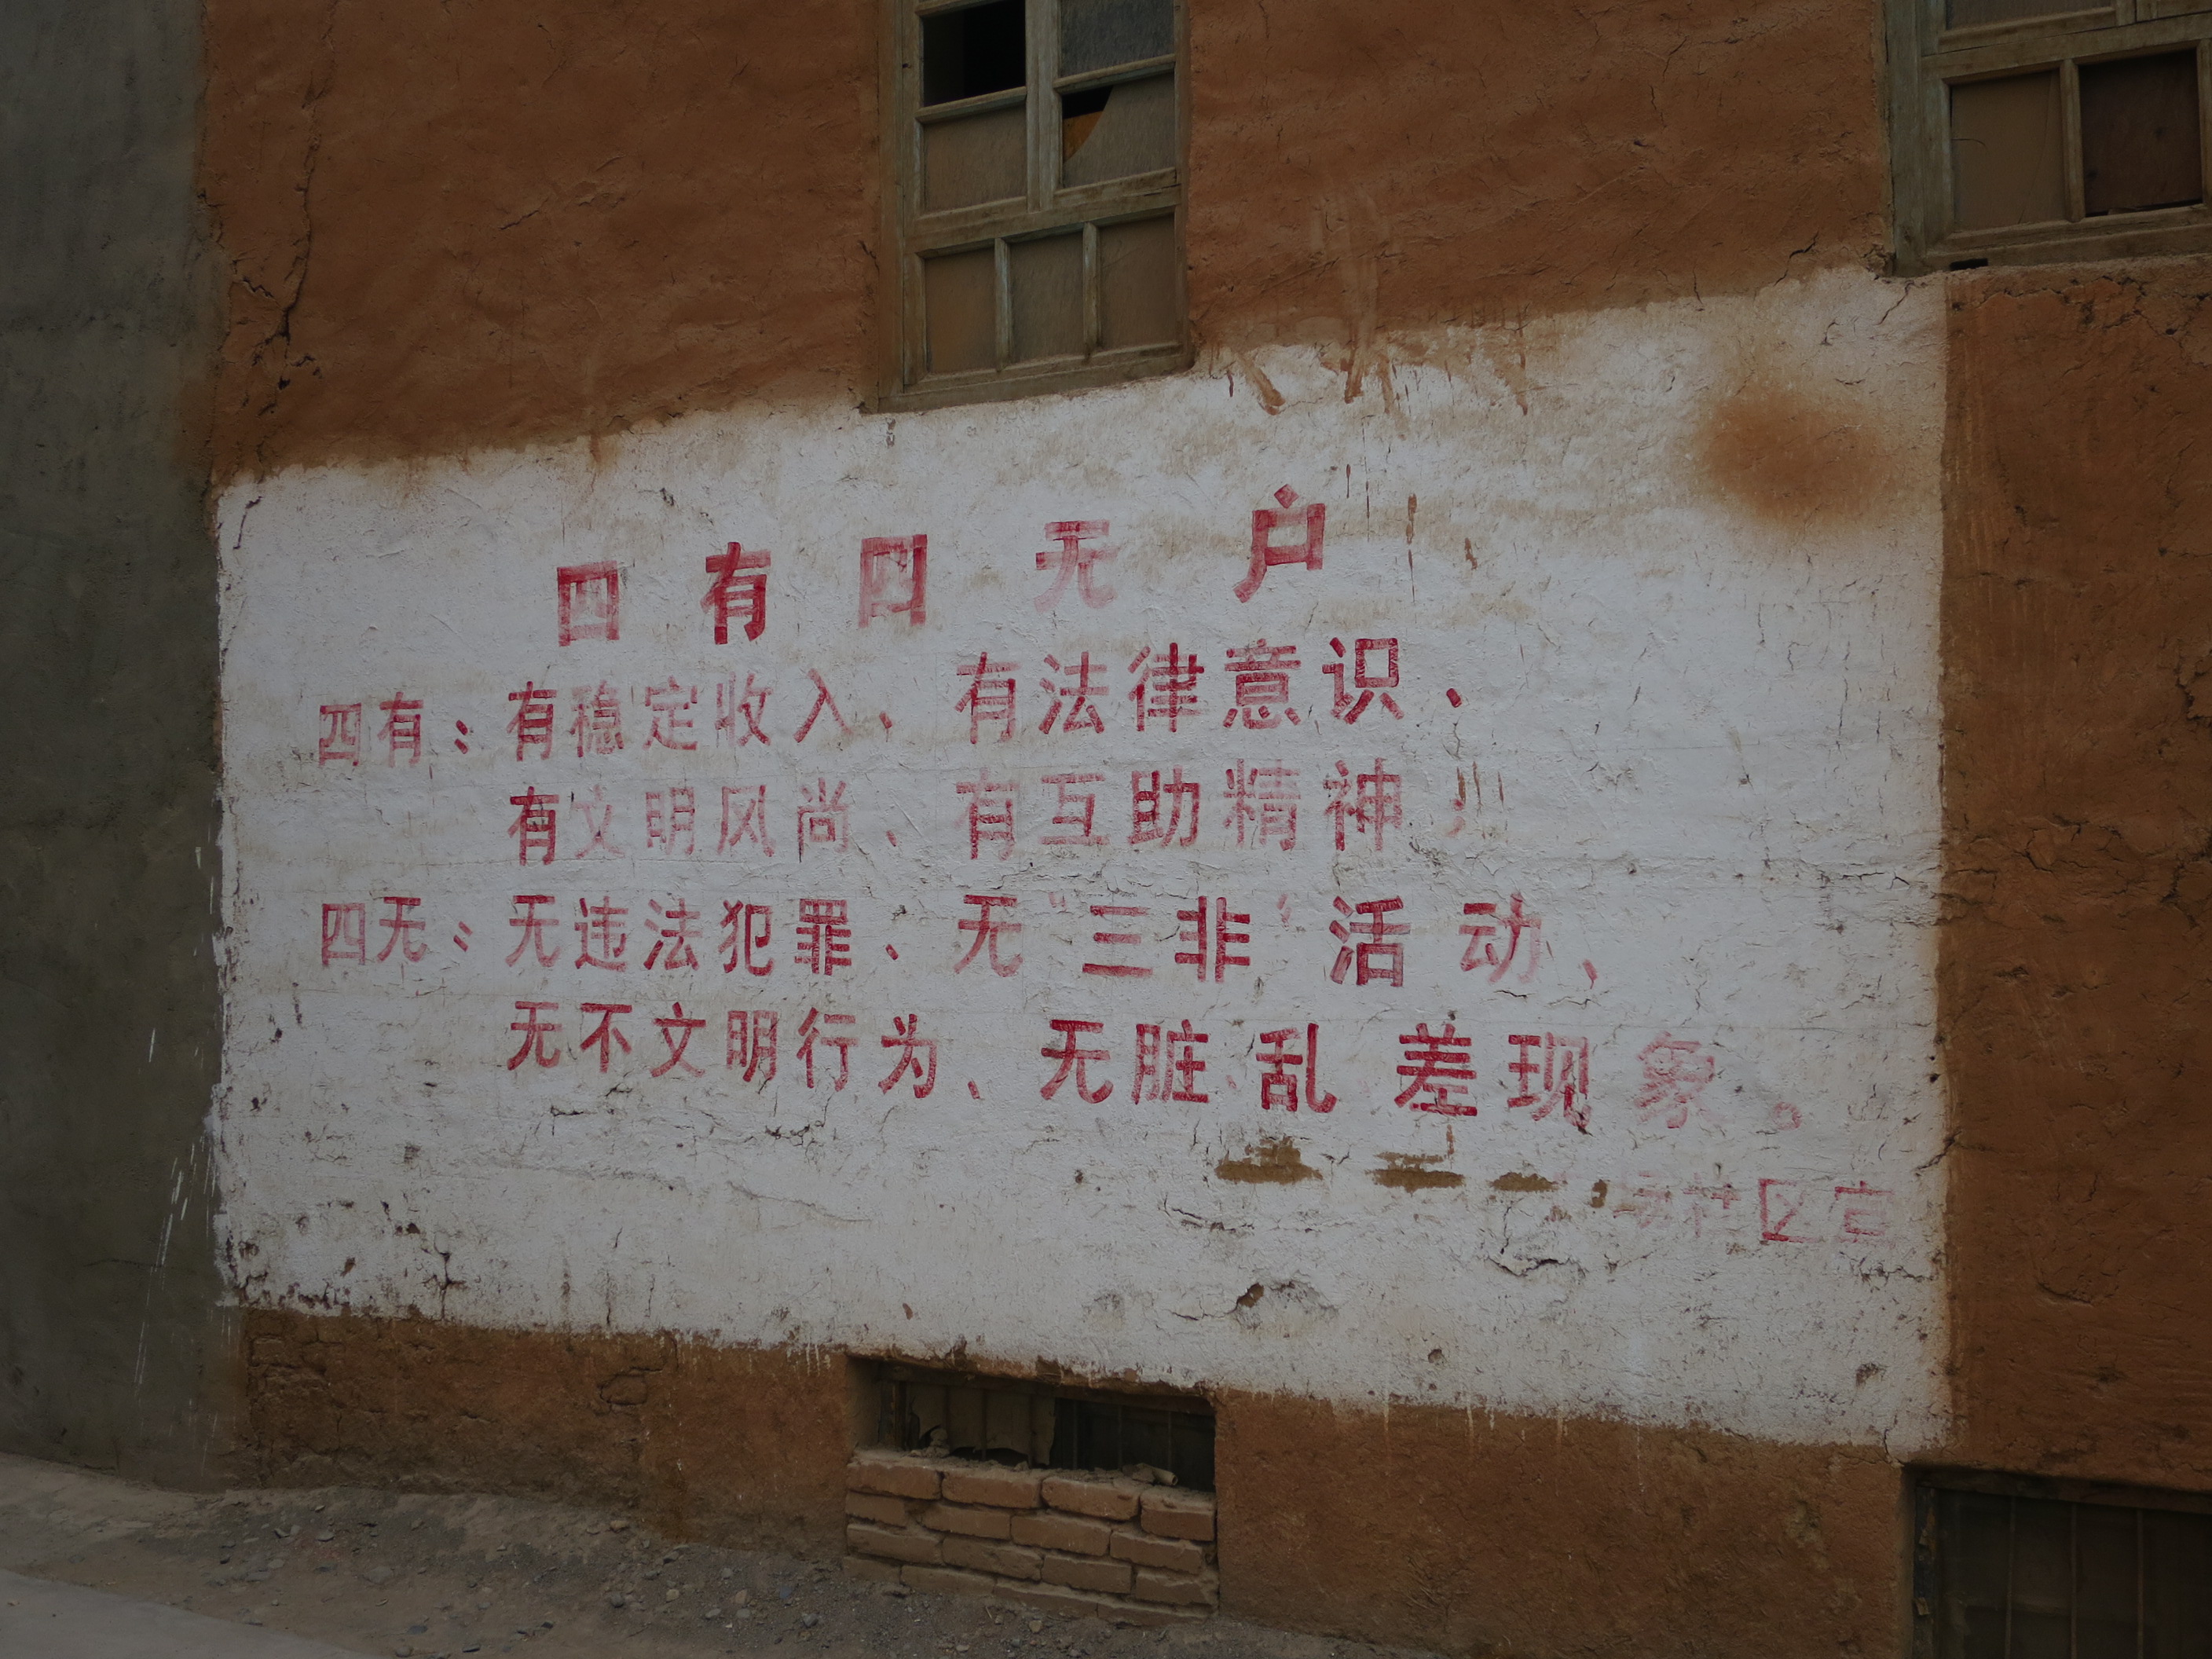 四有四无户
四有：有稳定收入、有法律意识、
有文明风尚、有互助精神
四无：无违法犯罪、无“三非”活动、
无不文明行为、无脏乱差现象。
社区宣